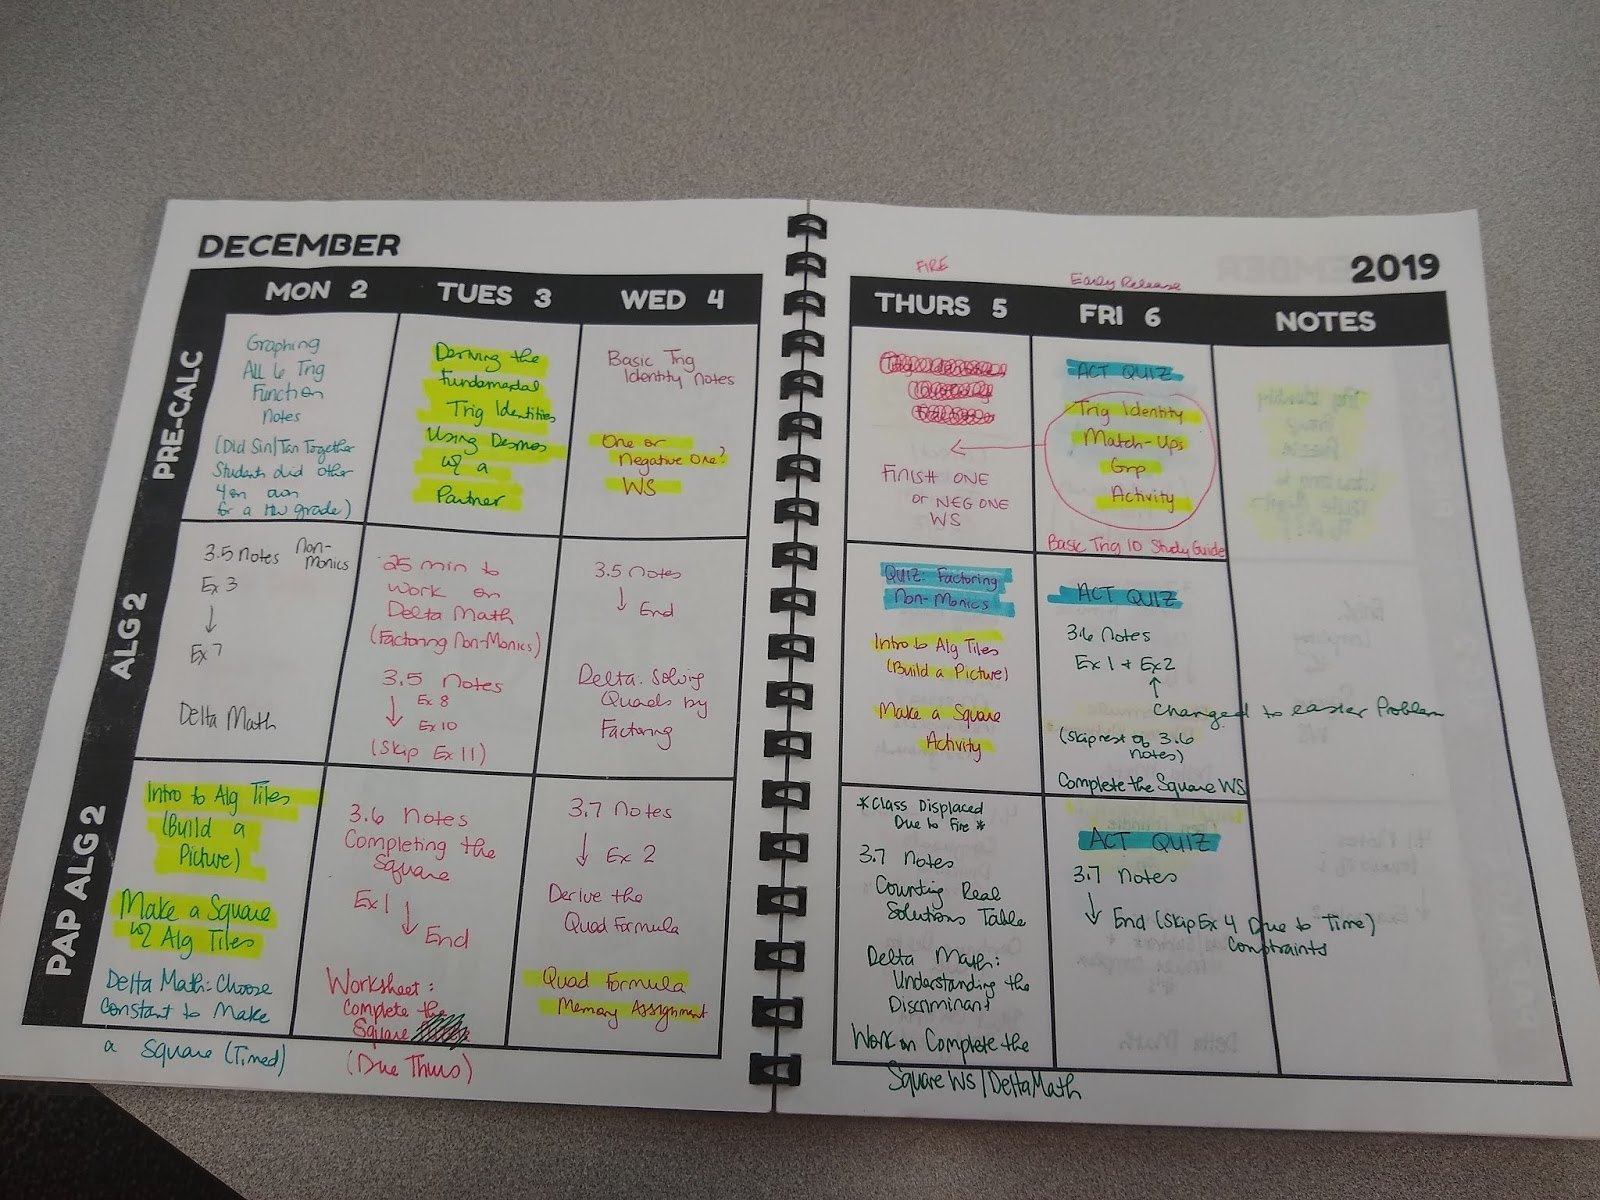 DECEMBER
2019
FIRE
Early Release
MON 2
TUES 3
WED 4
THURS 5
FRI 6
NOTES
PRE-CALC
Graphing
All 6 Trig
Function
Notes
(Did Sin/Tan Together
Students did other
4 on own
for a HW grade)
Deriving the
Fundamental
Trig Identities
Using Desmos
w/ a
Partner
Basic Trig
Identity Notes
One or
Negative One?
WS
FINISH ONE
OR NEG ONE
WS
ACT QUIZ
Trig Identity
Match-Ups
Grp
Activity
Basic Trig ID Study Guide
ALG 2
3.5 Notes Non-
Monics
Ex 3
↓
Ex 7
Delta Math
25 min to
work on
Delta Math
(Factoring Non-Monics)
3.5 Notes
Ex 8
↓ Ex 10
(Skip Ex 11)
3.5 Notes
↓ End
Delta: Solving
Quads by
Factoring
QUIZ: Factoring
Non-Monics
Intro to Alg Tiles
(Build a Picture)
Make a Square
Activity
ACT QUIZ
3.6 Notes
Ex 1 + Ex 2
↑
Changed to easier Problem
(Skip rest of 3.6
Notes)
Complete the Square WS
PAP ALG 2
Intro to Alg Tiles
(Build a
Picture)
Make a Square
w/ Alg Tiles
Delta Math: Choose
Constant to Make
a Square (Timed)
3.6 Notes
Completing the
Square
Ex 1 ↓
End
Worksheet:
Complete the
Square
(Due Thurs)
3.7 Notes
↓ Ex 2
Derive the
Quad Formula
Quad Formula
Memory Assignment
*Class Displaced
Due to Fire*
3.7 Notes
Counting Real
Solutions Table
Delta Math:
Understanding the
Discriminant
Work on Complete the
Square WS/DeltaMath
ACT QUIZ
3.7 Notes
↓ End (Skip Ex 4 Due to Time)
Constraints